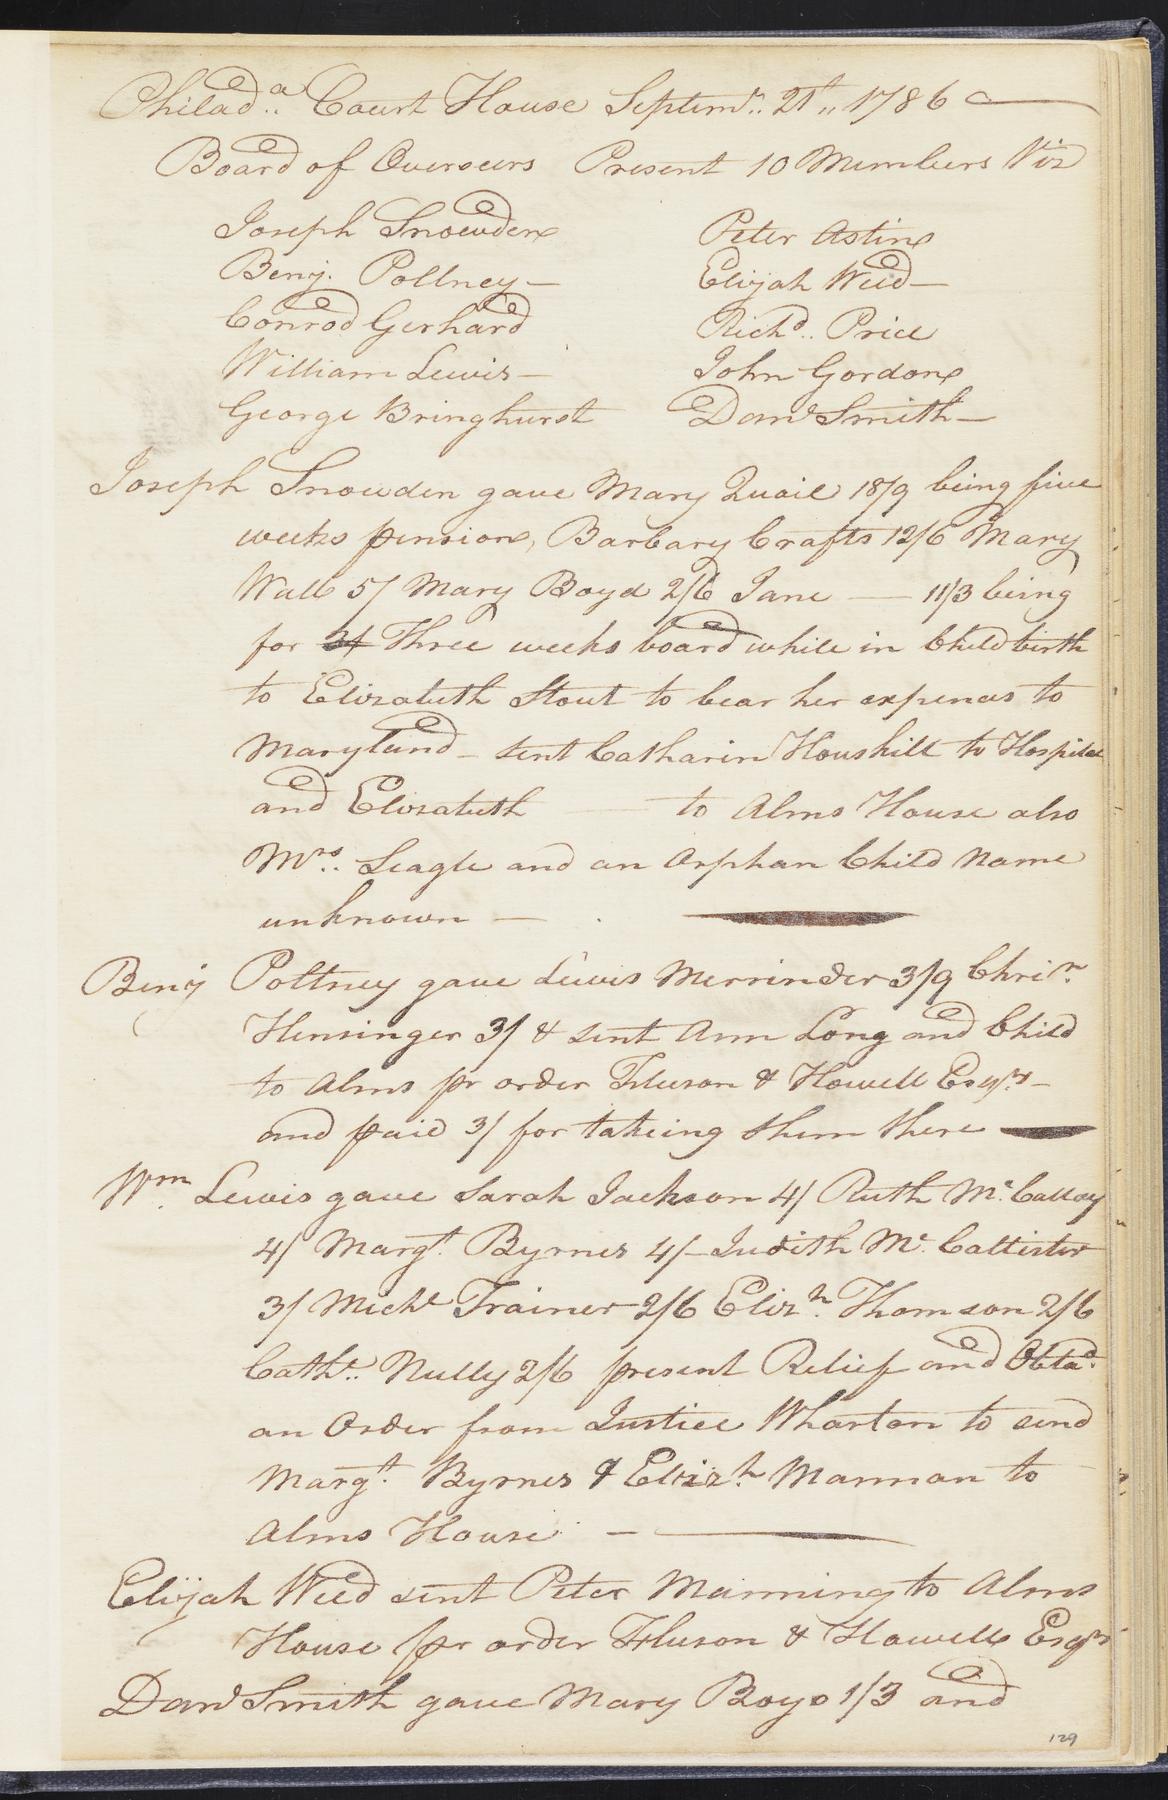 Philad.a Court House Septemr. 21st, 1786
Board of Overseers Present 10 Members Viz
Joseph Snowden
Peter Astin
Benj. Poltney —
Elijah Weed —
Conrod Gerhard
Richd. Price
William Lewis —
John Gordon
George Bringhurst
Danl Smith —
Joseph Snowden gave Mary Quail 18/9 being five
weeks pension, Barbary Crafts 12/6 Mary
Wall 5/ Mary Boyd 2/6 Jane — 11/3 being
for Three weeks board while in Child birth
to Elizabeth Stout to bear her expences to
Maryland — sent Catharin Houshill to Hospital
and Elizabeth — to Alms House also
Mrs. Seagle and an Orphan Child Name
unknown —
Benj Poltney gave Lewis Merrinder 3/9 Chrin.
Hensinger 3/ & sent Ann Long and Child
to Alms pr order & Howell Esqrs —
and paid 3/ for takeing them there
Wm. Lewis gave Sarah Jackson 4/ Ruth Mc. Calley
4/ Margt. Byrnes 4/ — Judith Mc. Callister
3/ Michl Trainer 2/6 Elizh. Thomson 2/6
Cathe. Nully 2/6 present Relief and Obtad.
an Order from Justice Wharton to send
Margt. Byrnes & Elizh. Mannan to
Alms House —
Elijah Weed sent Peter Manning to Alms
House pr order & Howell Esqrs
Danl Smith gave Mary Boyd 1/3 and
129